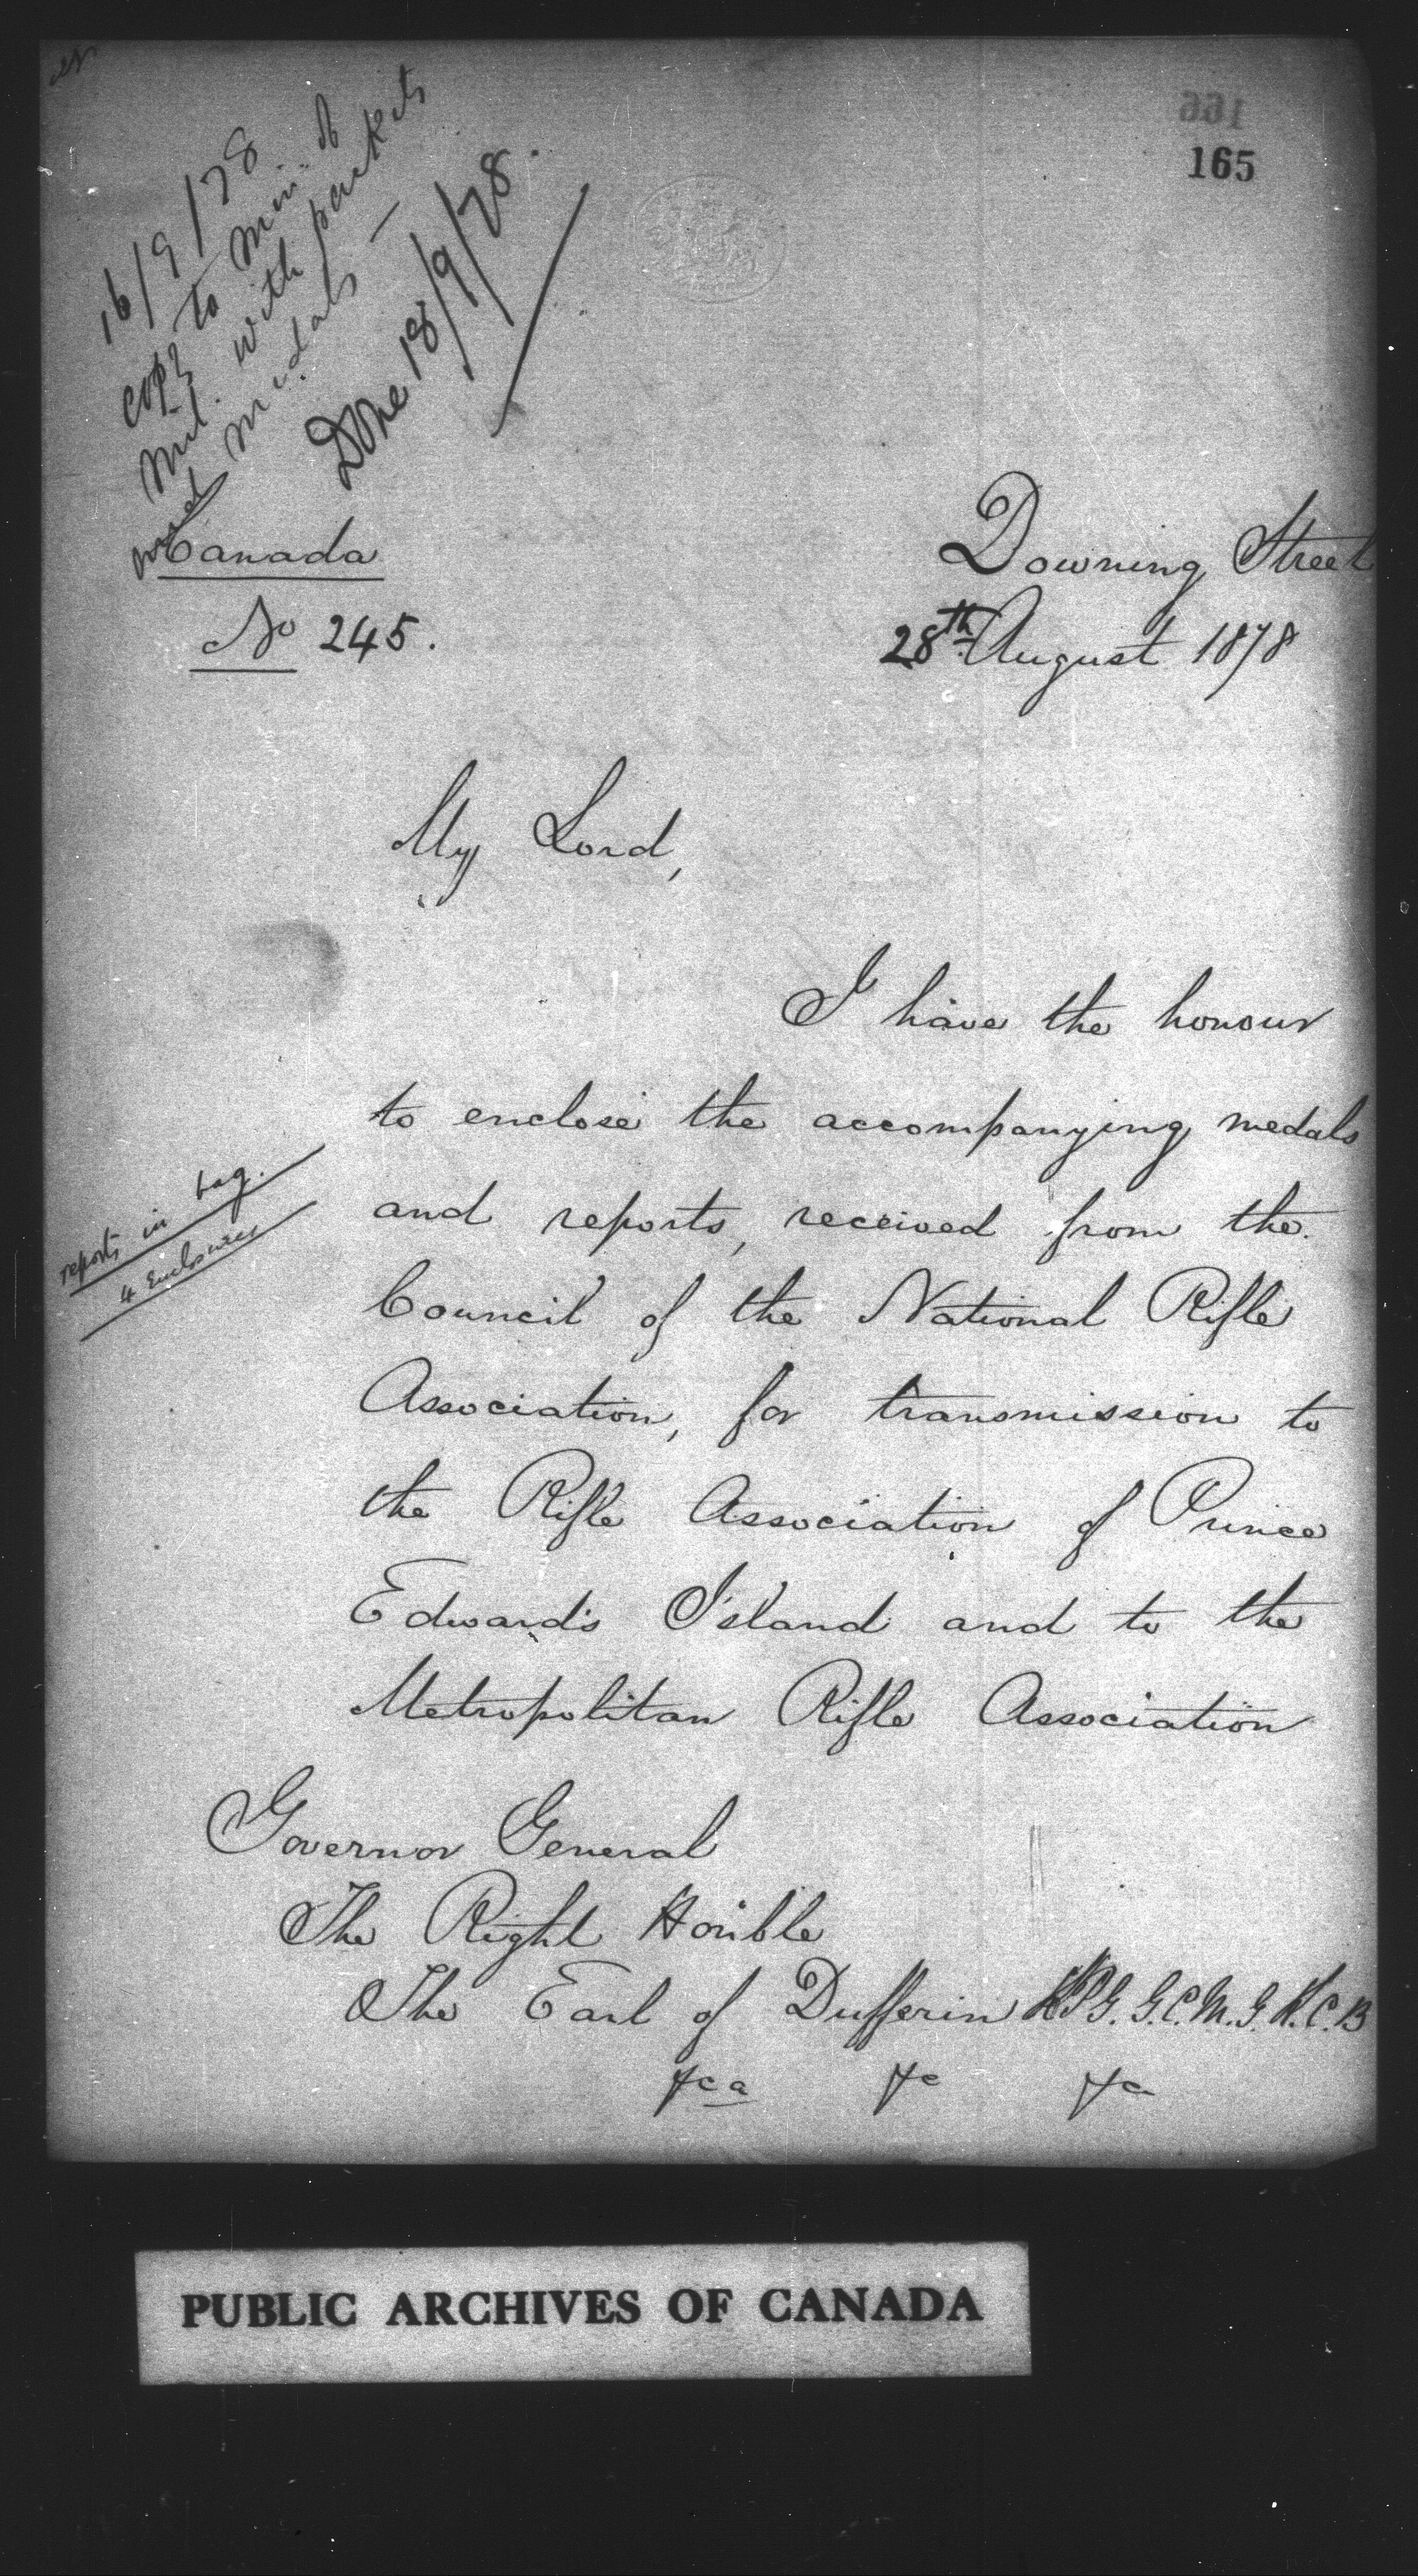 165
16/9/78
copy to Min. of
Mil. with packets
and medals —
Done 18/9/78.
Canada
No 245.
Downing Street
28th August 1878
My Lord,
I have the honour
to enclose the accompanying medals
and reports, received from the
Council of the National Rifle
Association, for transmission to
the Rifle Association of Prince
Edward's Island and to the
Metropolitan Rifle Association
reports in bag.
4 Enclosures
Governor General
The Right Honble
The Earl of Dufferin K.P. G.C.M.G. K.C.B
&c a &c &c
PUBLIC ARCHIVES OF CANADA